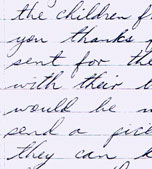 the children f
you thanks
sent for the
with their
would be
send a
they can